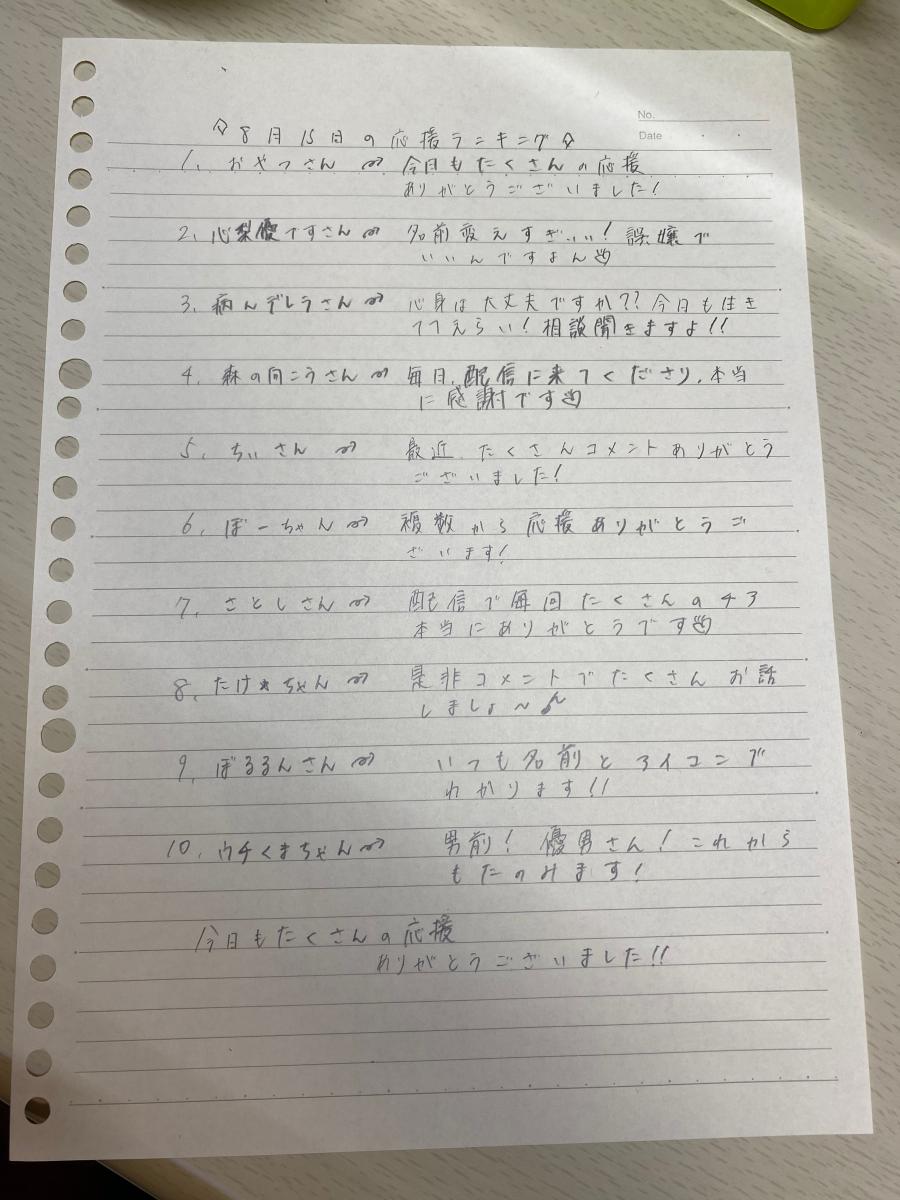 No.
Date
☆8月15日の応援ランキング☆
1. おやつさん⇝ 今日もたくさんの応援
ありがとうございました!
2. 心梨優ですさん⇝ 名前変えすぎぃぃ! 誤嬢で
いいんですよん
3. 病んデレラさん⇝ 心身は大丈夫ですか?? 今日も生き
ててえらい! 相談聞きますよ!!
4. 森の向こうさん⇝ 毎日、配信に来てくださり、本当
に感謝です
5. ちぃさん⇝ 最近、たくさんコメントありがとう
ございました!
6. ぼーちゃん⇝ 複数から応援ありがとうご
ざいます!
7. さとしさん⇝ 配信で毎回たくさんのチア
本当にありがとうです
8. たけ★ちゃん⇝ 是非コメントでたくさんお話
しましょ〜♪
9. ぽるるんさん⇝ いつも名前とアイコンで
わかります!!
10. ウチくまちゃん⇝ 男前! 優男さん! これから
もたのみます!
今日もたくさんの応援
ありがとうございました!!